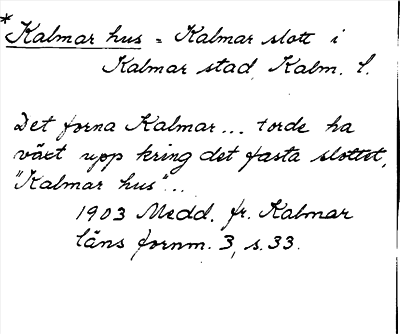 *Kalmar hus = Kalmar slott i
Kalmar stad, Kalm. l.
Det forna Kalmar... torde ha
växt upp kring det fasta slottet,
"Kalmar hus"...
1903 Medd. fr. Kalmar
läns fornm. 3, s. 33.